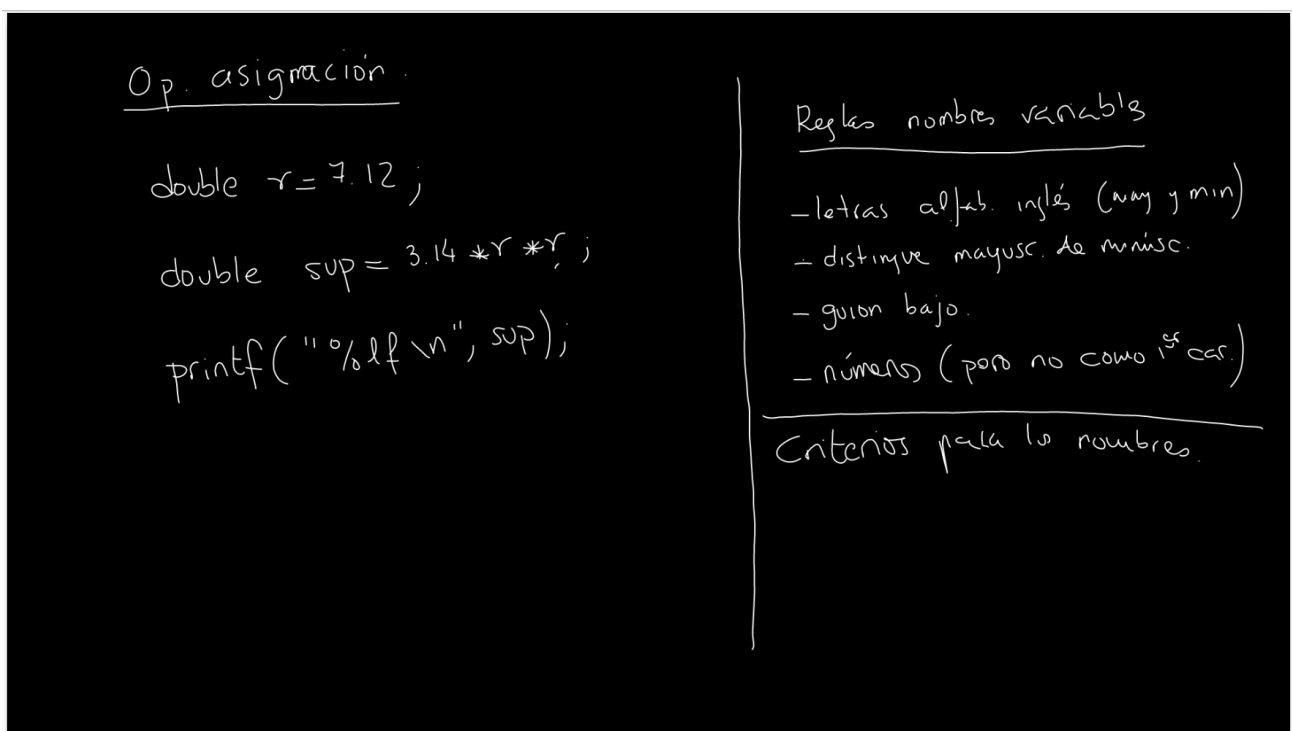 Op. asignación.
double r = 7.12;
double sup = 3.14 * r * r;
printf("%lf\n", sup);
Reglas nombres variables
- letras alfab. inglés (may y min)
- distingue mayusc. de minúsc.
- guion bajo.
- números (pero no como 1er car.)
Criterios para los nombres.